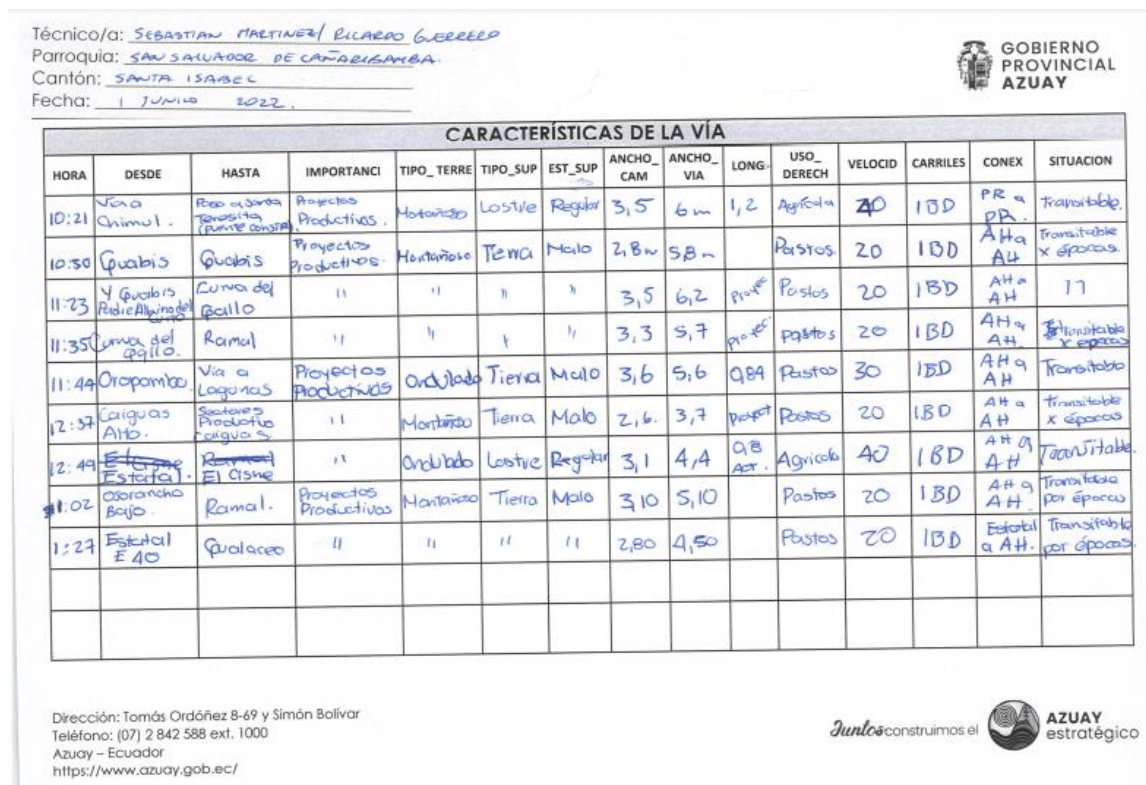 Técnico/a: SEBASTIAN MARTINEZ/ RICARDO GUERRERO
Parroquia: SAN SALVADOR DE CAÑARIBAMBA.
Cantón: SANTA ISABEL
Fecha: 1 JUNIO 2022.
GOBIERNO
PROVINCIAL
AZUAY
CARACTERÍSTICAS DE LA VÍA
HORA DESDE HASTA IMPORTANCI TIPO_TERRE TIPO_SUP EST_SUP ANCHO_CAM ANCHO_VIA LONG USO_DERECH VELOCID CARRILES CONEX SITUACION
10:21 Vía a Chimul. Santa Teresita (puente Proyectos Productivos. Motañoso Lastre Regular 3,5 6m 1,2 Agrícola 40 1BD PR a PR. Transitable.
10:30 Guabis Guabis Proyectos Productivos. Montañoso Tierra Malo 2,8m 5,8m Pastos 20 1BD AH a AH Transitable x épocas
11:23 Y Guabis Curva del Gallo " " " " 3,5 6,2 Proyec Pastos 20 1BD AH a AH 11
11:35 Curva del gallo. Ramal " " " " 3,3 5,7 proyec. pastos 20 1BD AH a AH. transitable x épocas
11:44 Oropamba. Vía a Lagunas Proyectos Productivos Ondulado Tierra Malo 3,6 5,6 0,84 Pastos 30 1BD AH a AH Transitable
12:37 Caiguas Alto. Sectores Productivo caiguas. " Montañoso Tierra Malo 2,6. 3,7 Proyect Pastos 20 1BD AH a AH transitable x épocas
12:49 Estatal. El Cisne " Ondulado Lastre Regular 3,1 4,4 0,8 Agrícola 40 1BD AH a AH Transitable.
1:02 Osorancho Bajo. Ramal. Proyectos Productivos Montañoso Tierra Malo 3,10 5,10 Pastos 20 1BD AH a AH. Transitable por épocas
1:27 Estatal E40 Gualaceo " " " " 2,80 4,50 Pastos 20 1BD Estatal a AH. Transitable por épocas.
Dirección: Tomás Ordóñez 8-69 y Simón Bolívar
Teléfono: (07) 2 842 588 ext. 1000
Azuay – Ecuador
https://www.azuay.gob.ec/
Juntos construimos el
AZUAY
estratégico